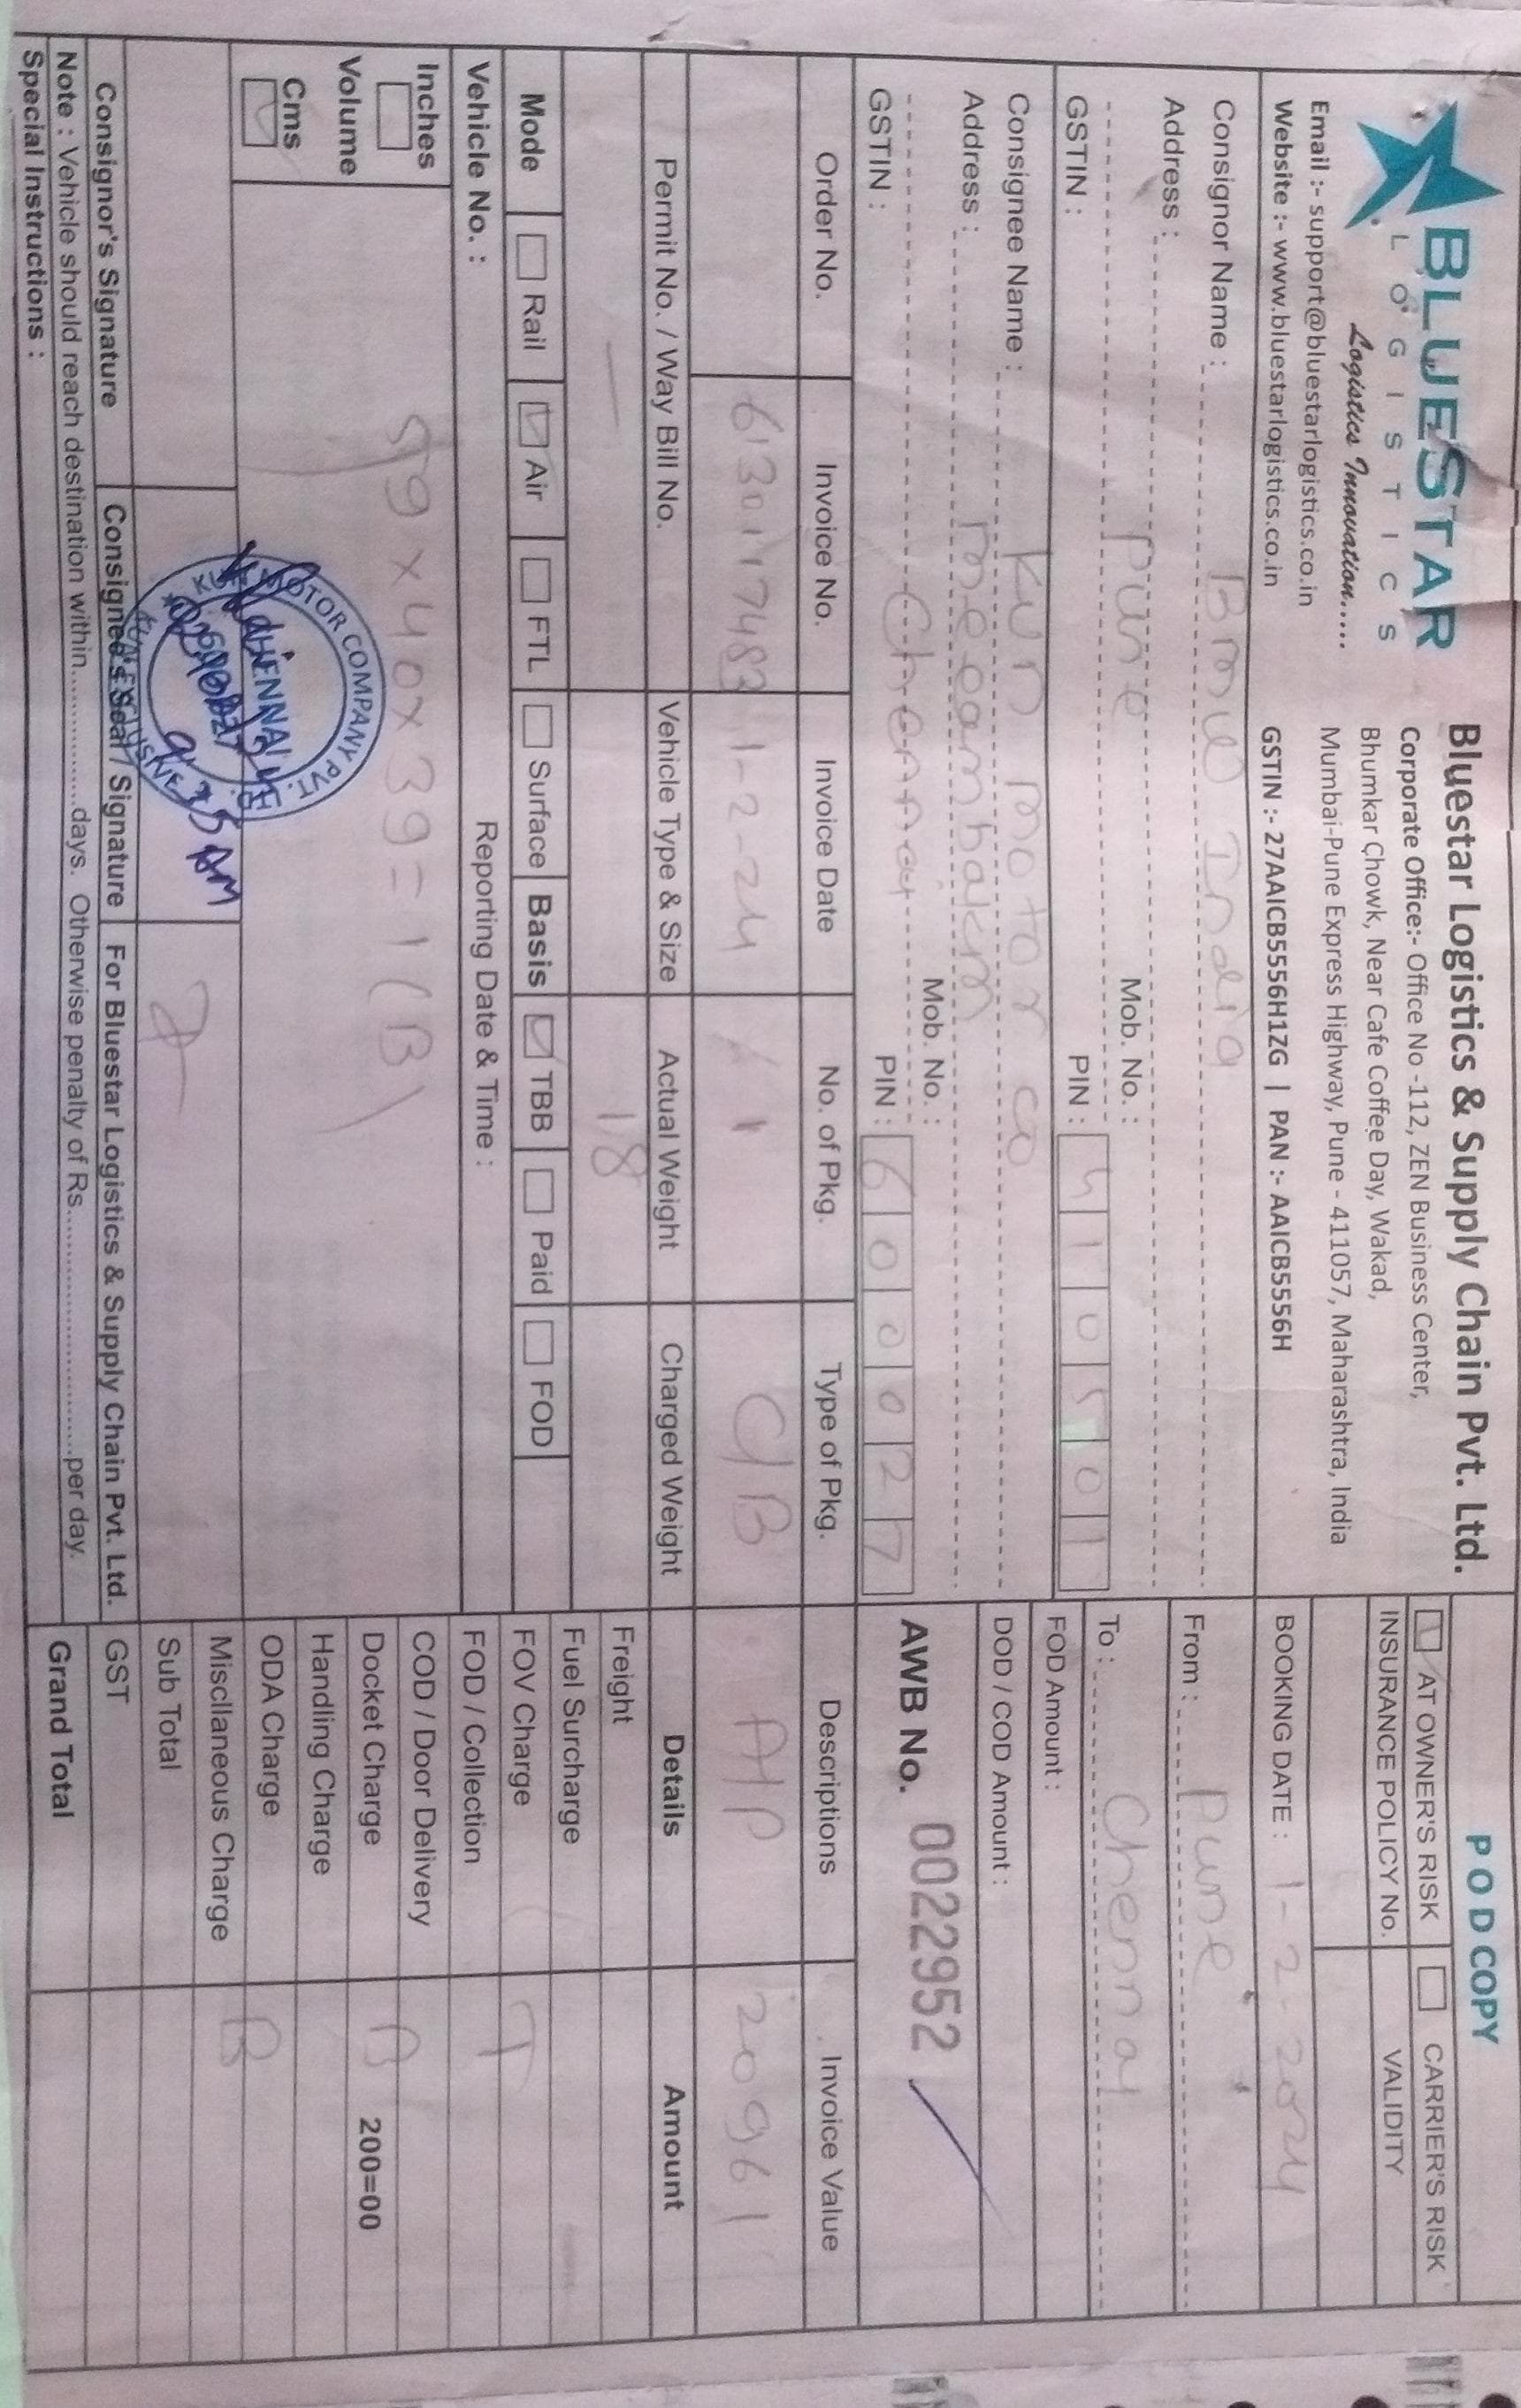 BLUESTAR
LOGISTICS
Logistics Innovation.....
Email :- support@bluestarlogistics.co.in
Website :- www.bluestarlogistics.co.in
Bluestar Logistics & Supply Chain Pvt. Ltd.
Corporate Office:- Office No -112, ZEN Business Center,
Bhumkar Chowk, Near Cafe Coffee Day, Wakad,
Mumbai-Pune Express Highway, Pune - 411057, Maharashtra, India
GSTIN :- 27AAICB5556H1ZG | PAN :- AAICB5556H
POD COPY
AT OWNER'S RISK CARRIER'S RISK
INSURANCE POLICY No. VALIDITY
BOOKING DATE : 1-2-2024
From : Pune
To : Chennai
FOD Amount :
DOD / COD Amount :
AWB No. 0022952
Consignor Name : Bmw India
Address :
Pune Mob. No. :
GSTIN : PIN : 410501
Consignee Name : Kun motor co
Address :
Chennai Mob. No. :
GSTIN : PIN : 600027
Order No. Invoice No. Invoice Date No. of Pkg. Type of Pkg. Descriptions Invoice Value
6130117483 1-2-24 1 C/B A/P 20961
Permit No. / Way Bill No. Vehicle Type & Size Actual Weight Charged Weight Details Amount
— 18
Freight
Fuel Surcharge
FOV Charge T
FOD / Collection
COD / Door Delivery
Docket Charge B 200=00
Handling Charge
ODA Charge B
Miscllaneous Charge
Sub Total
GST
Grand Total
Mode Rail Air FTL Surface Basis TBB Paid FOD
Vehicle No. : Reporting Date & Time :
Inches
Volume
Cms
59x40x39=1(B)
KUN MOTOR COMPANY PVT. LTD.
CHENNAI
600027
KUN EXCLUSIVE
9.35 AM
Consignor's Signature Consignee's Seal / Signature For Bluestar Logistics & Supply Chain Pvt. Ltd.
Note : Vehicle should reach destination within.................days. Otherwise penalty of Rs..............................per day.
Special Instructions :